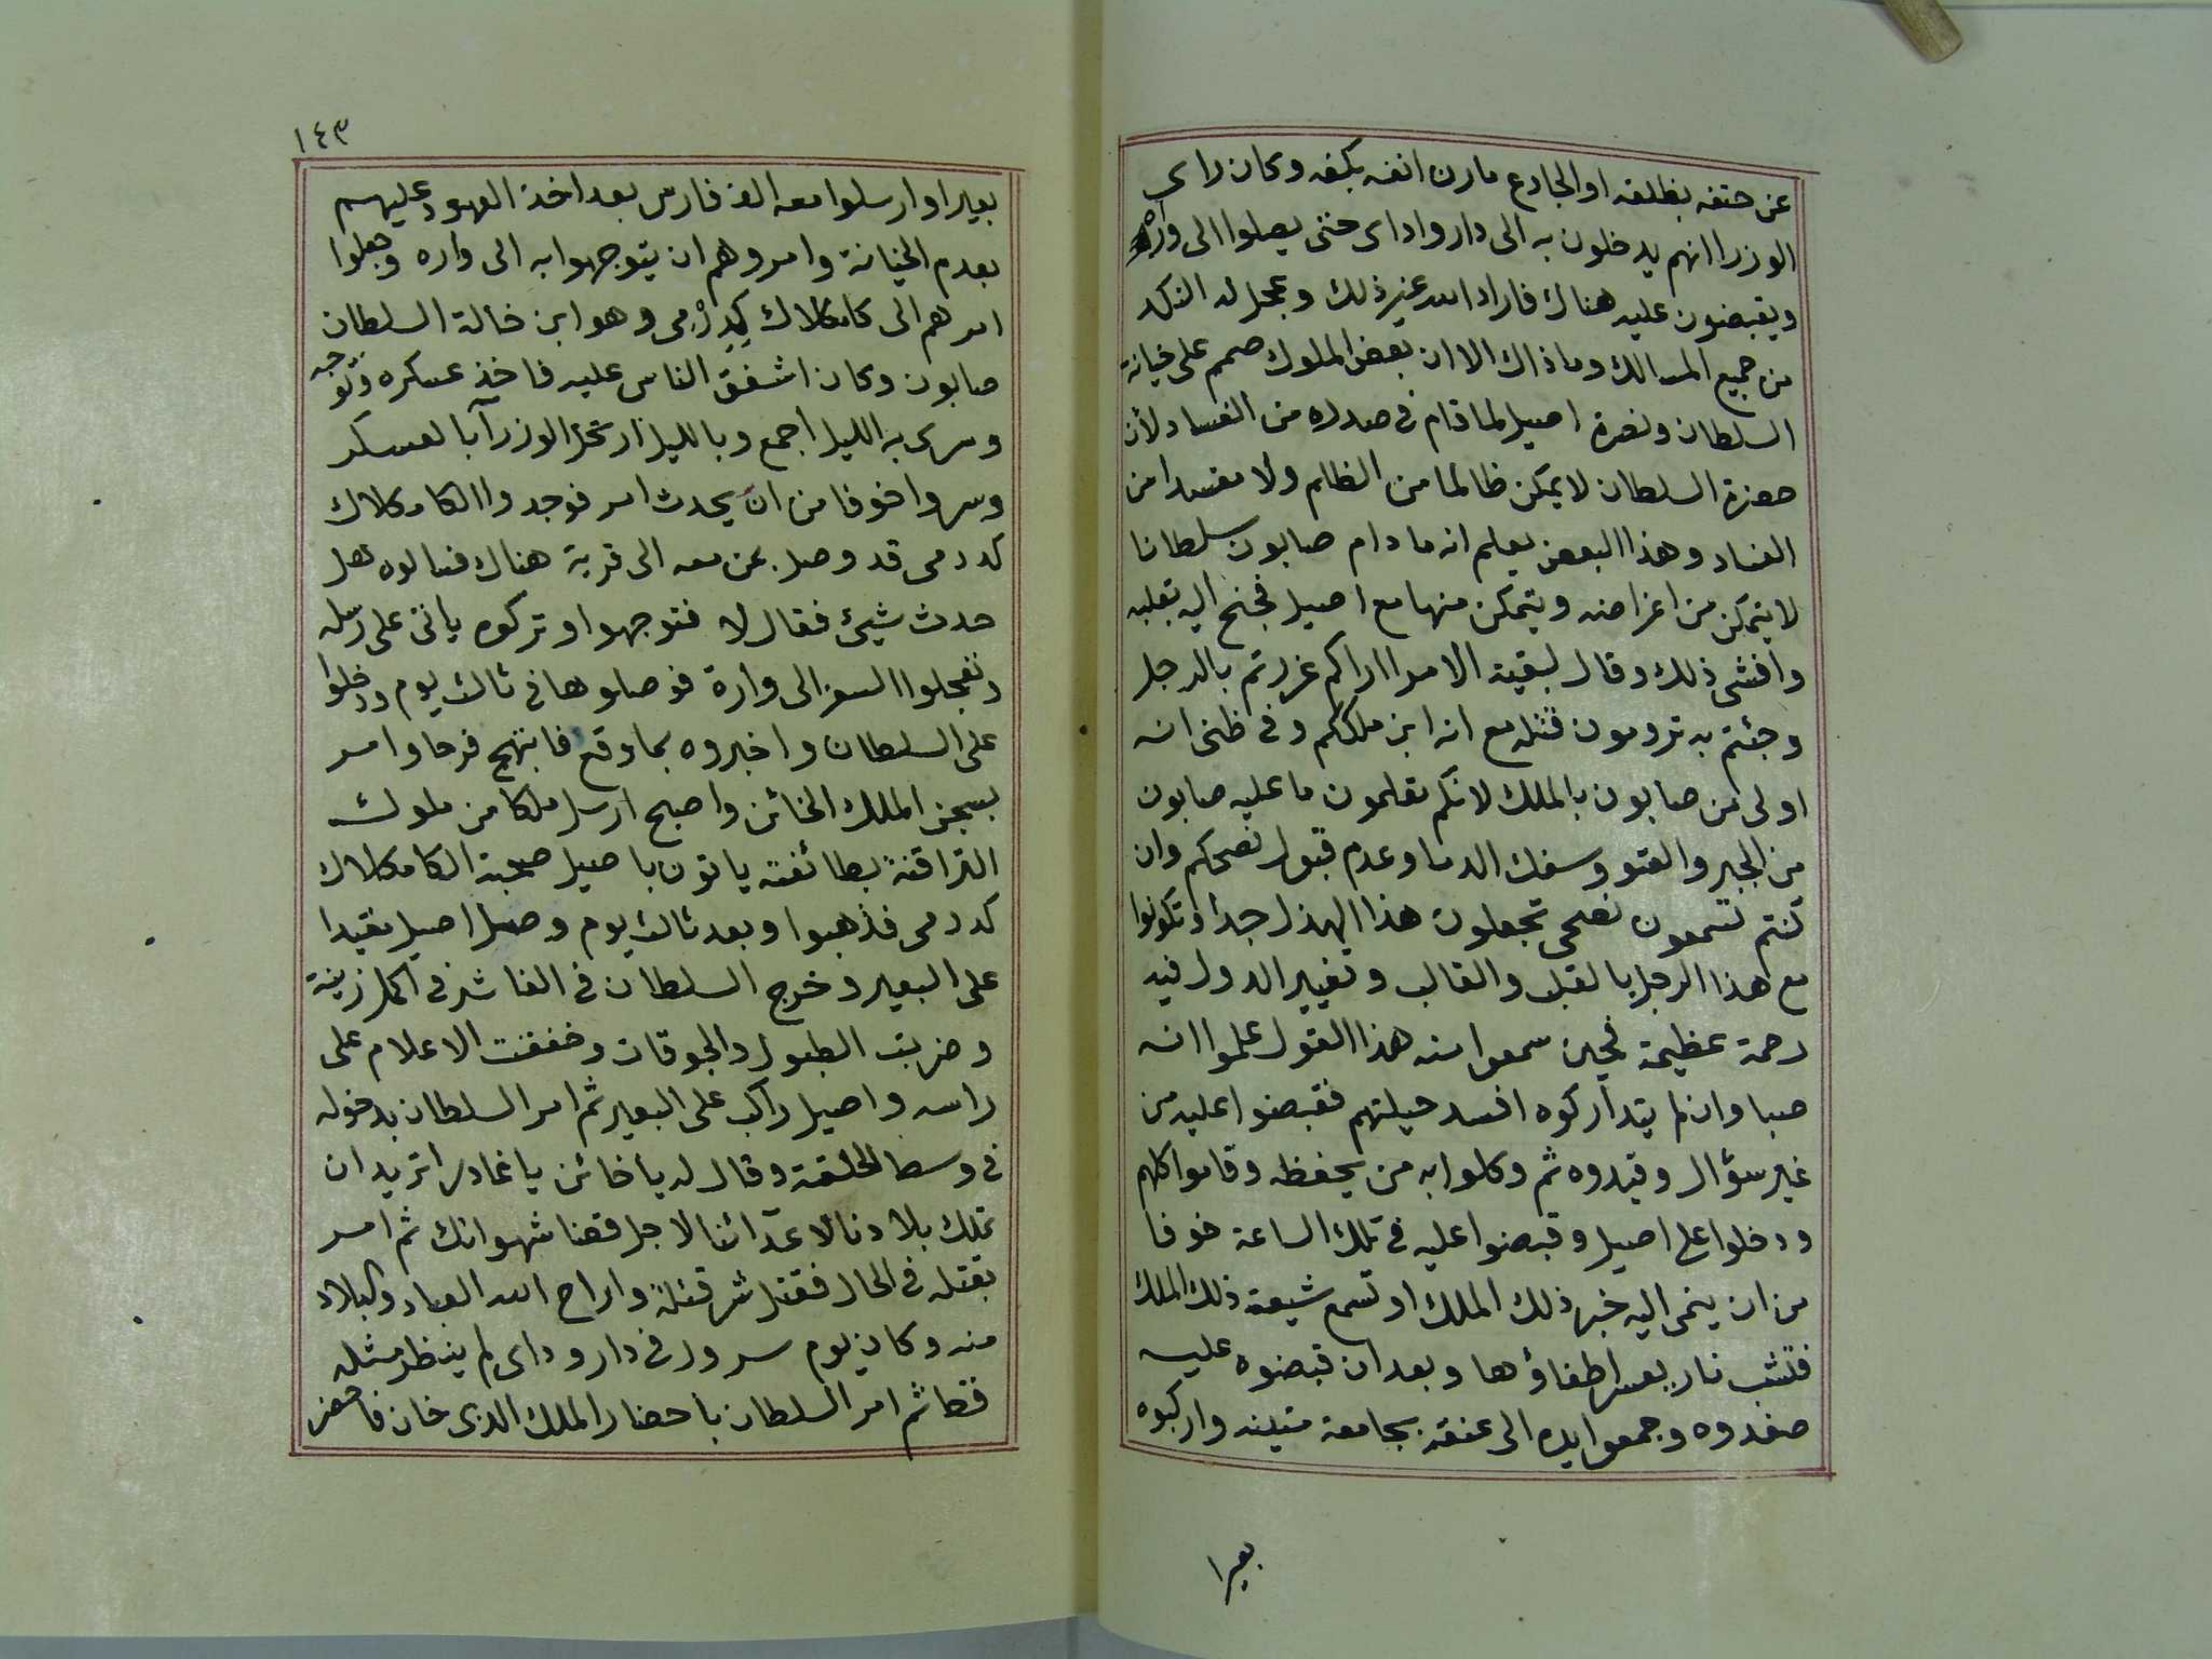 عن حتفه بظلفه او الجادع مارن انفه بكفه وكان راى
الوزرا انهم يدخلون به الى دار واداى حتى يصلوا الى واره
ويقبضون عليه هناك فاراد الله غير ذلك وعجل له النكد
من جميع المسالك وما ذاك الا ان بعض الملوك صمم على خيانة
السلطان ونصرة اصيل لما قام فى صدره من الفساد لأن
حضرة السلطان لا يمكن ظالما من الظلم ولا مفسدا من
الفساد وهذا البعض يعلم انه ما دام صابون سلطانا
لا يتمكن من اغراضه ويتمكن منها مع اصيل فجنح اليه بقلبه
وافشى ذلك وقال لبقية الامرا اراكم غررتم بالرجل
وجئتم به ترومون قتله مع انه ابن ملككم وفى ظنى انه
اولى من صابون بالملك لانكم تعلمون ما عليه صابون
من الجبر والعتو وسفك الدما وعدم قبول نصحكم وان
كنتم تسمعون نصحى تجعلون هذا الهذل جدا وتكونوا
مع هذا الرجل بالقلب والقالب وتغيير الدول فيه
رحمة عظيمة فحين سمعوا منه هذا القول علموا انه
صبا وان لم يتداركوه افسد حيلتهم فقبضوا عليه من
غير سؤال وقيدوه ثم وكلوا به من يحفظه وقاموا كلهم
ودخلوا على اصيل وقبضوا عليه فى تلك الساعة خوفا
من ان ينمى اليه خبر ذلك الملك او تسمع شيعة ذلك الملك
فتشب نار يعسر اطفاؤها وبعد ان قبضوه عليه
صفدوه وجمعوا يده الى عنقه بجامعة متينه واركبوه
بعيرا
١٤٣
بعيرا وارسلوا معه الف فارس بعد اخذ العهود عليهم
بعدم الخيانة وامروهم ان يتوجهوا به الى واره وجعلوا
امرهم الى كامكلاك كدرمى وهو ابن خالة السلطان
صابون وكان اشفق الناس عليه فاخذ عسكره وتوجه
وسرى به الليل اجمع وبالليل ارتحل الوزرآ بالعسكر
وسروا خوفا من ان يحدث امر فوجدوا الكامكلاك
كدرمى قد وصل بمن معه الى قرية هناك فسالوه هل
حدث شيئ فقال لا فتوجهوا وتركوه ياتى على رسله
وتعجلوا السفر الى وارة فوصلوها فى ثالث يوم ودخلوا
على السلطان واخبروه بما وقع فابتهج فرحا وامر
بسجن الملك الخائن واصبح ارسل ملكا من ملوك
التراقنة بطائفته ياتون باصيل صحبة الكامكلاك
كدرمى فذهبوا وبعد ثالث يوم وصل اصيل مقيدا
على البعير وخرج السلطان فى الفاشر فى اكمل زينة
وضربت الطبول والبوقات وخفقت الاعلام على
راسه واصيل راكب على البعير ثم امر السلطان بدخوله
فى وسط الحلقة وقال له يا خائن يا غادر اتريد ان
تملك بلادنا لاعدآئنا لاجل قضا شهواتك ثم امر
بقتله فى الحال فقتل شر قتلة واراح الله العباد والبلاد
منه وكان يوم سرور فى دار وداى لم ينظر مثله
قط ثم امر السلطان باحضار الملك الذى خان فاحضر